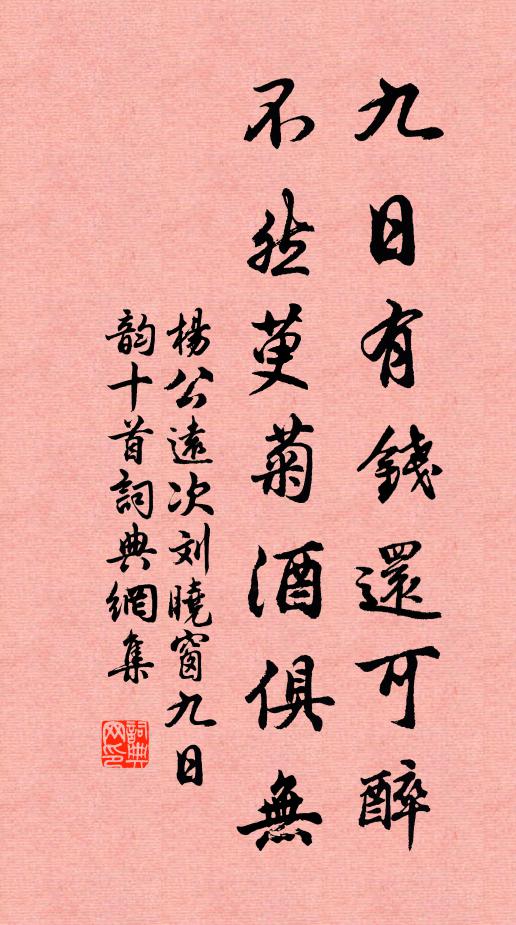 九日有錢還可醉
不然萸菊酒俱無
楊公遠次刘曉窗九日
韵十首詞典網集
詞典网印